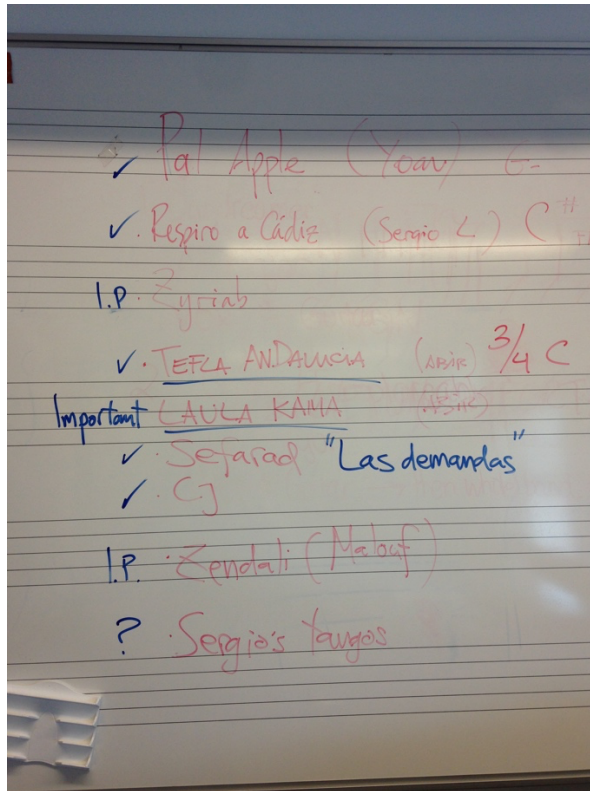 ✓ Pal Apple (Yoav) G-
✓ · Respiro a Cádiz (Sergio L) C#
I.P · Zyriab
✓ · TEFLA ANDALUCIA (ABIR) 3/4 C
Important LAULA KAMA (ABIR)
✓ · Sefarad "Las demandas"
✓ · CJ
I.P. · Zendali (Malouf)
? · Sergio's Tangos